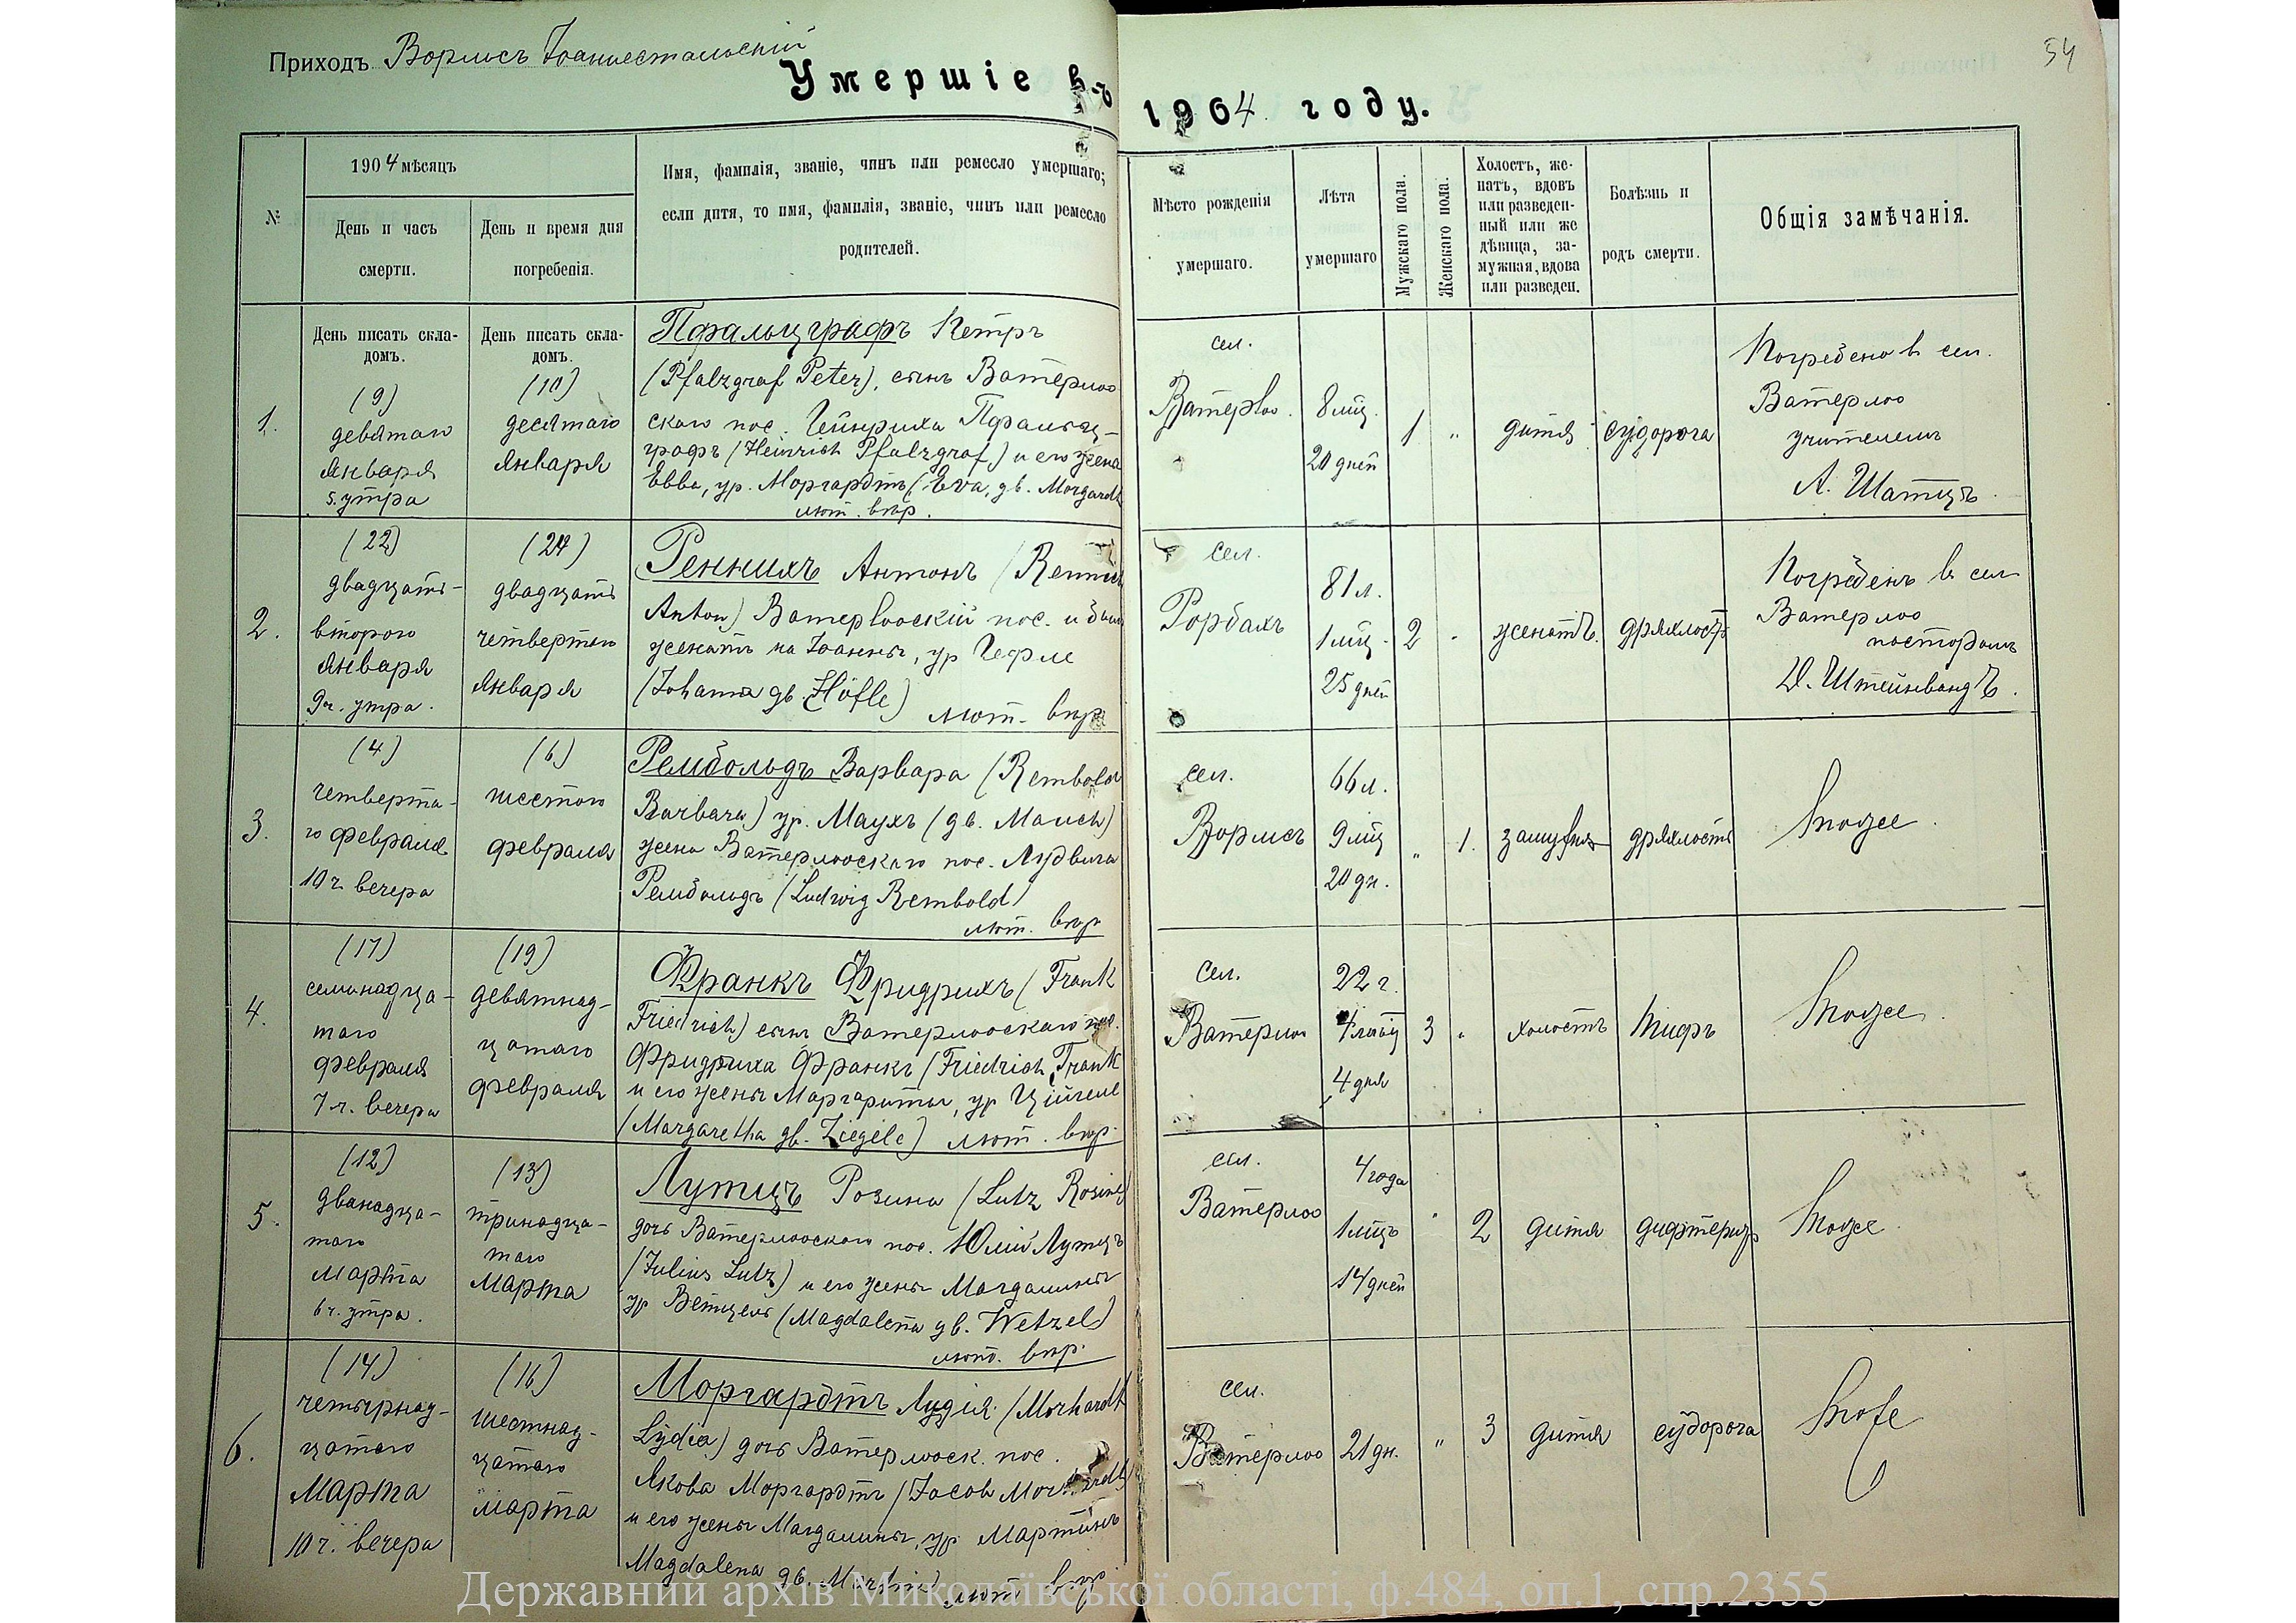 Приходъ Вормсъ Іоаннестальскій
Умершіе въ 1904 году.
54
№
1904 мѣсяцъ
День и часъ
смерти.
День и время дня
погребенія.
Имя, фамилія, званіе, чинъ или ремесло умершаго;
если дитя, то имя, фамилія, званіе, чинъ или ремесло
родителей.
Мѣсто рожденія
умершаго.
Лѣта
умершаго
Мужскаго пола.
Женскаго пола.
Холостъ, же-
натъ, вдовъ
или разведен-
ный или же
дѣвица, за-
мужная, вдова
или разведен.
Болѣзнь и
родъ смерти.
Общія замѣчанія.
1.
День писать скла-
домъ.
(9)
девятаго
Января
5. утра
День писать скла-
домъ.
(10)
десятаго
Января
Пфальцграфъ Петръ
(Pfalzgraf Peter), сынъ Ватерлоо
скаго пос. Гейнриха Пфальц-
графъ (Heinrich Pfalzgraf) и его жена
Евва, ур. Моргардтъ (Eva, gb. Morgardt
лют. вѣр.
сел.
Ватерloo.
8 мц.
20 дней
1
"
дитя
судорога
Погребено в сел.
Ватерлоо
учителемъ
А. Шатцъ.
2.
(22)
двадцать-
второго
Января
9 ч. утра.
(24)
двадцать
четвертого
Января
Реннихъ Антонъ (Rennich
Anton) Ватерlooскій пос. и был
женатъ на Іоанны, ур Гефле
(Johanna gb. Höfle)
лют. вѣр
сел.
Рорбахъ
81 л.
1 мц.
25 дней
2
"
женатъ.
дряхлость
Погребенъ в сел
Ватерлоо
пасторомъ
Д. Штейнвандъ.
3.
(4)
четверта-
го февраля
10 ч. вечера
(6)
шестого
февраля
Рембольдъ Варвара (Rembold
Barbara) ур. Маухъ (gb. Mauch)
жена Ватерлооскаго пос. Людвига
Рембольдъ (Ludwig Rembold)
лют. вѣр
сел.
Вормсъ
66 л.
9 мц
20 дн.
"
1.
замужняя
дряхлость
Тоже.
4.
(17)
семнадца-
таго
февраля
7 ч. вечера
(19)
девятнад-
цатаго
февраля
Франкъ Фридрихъ (Frank
Friedrich) сынъ Ватерлооскаго пос.
Фридриха Франкъ (Friedrich Frank
и его жены Маргариты, ур Цигеле
(Margaretha gb. Ziegele) лют. вѣр.
сел.
Ватерлоо
22 г.
4 дня
3
"
холостъ
Тифъ
Тоже.
5.
(12)
двенадца-
таго
Марта
6 ч. утра.
(13)
тринадца-
таго
Марта
Лутцъ Розина (Lutz Rosine)
дочь Ватерлооскаго пос. Юлій Лутцъ
(Julius Lutz) и его жены Магдалины
ур Ветцель (Magdalena gb. Wetzel)
лют. вѣр.
сел.
Ватерлоо
4 года
1 мцъ
14 дней
"
2
дитя
дифтеритъ
Тоже.
6.
(14)
четырнад-
цатаго
Марта
10 ч. вечера
(16)
шестнад-
цатаго
марта
Моргардтъ Лидія (Morhardt
Lydia) дочь Ватерлооск. пос.
Якова Моргардтъ (Jacob Morhardt)
и его жены Магдалины, ур. Мартинъ
Magdalena gb. Martin) лют вѣр.
сел.
Ватерлоо
21 дн.
"
3
дитя
судорога
Тоже
Державний архів Миколаївської області, ф.484, оп.1, спр.2355